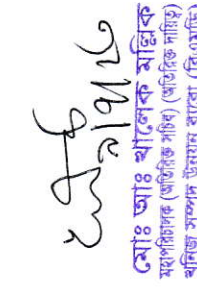 মোঃ আঃ খালেক মল্লিক
মহাপরিচালক (অতিরিক্ত সচিব) (অতিরিক্ত দায়িত্ব)
খনিজ সম্পদ উন্নয়ন ব্যুরো (বিএমডি)